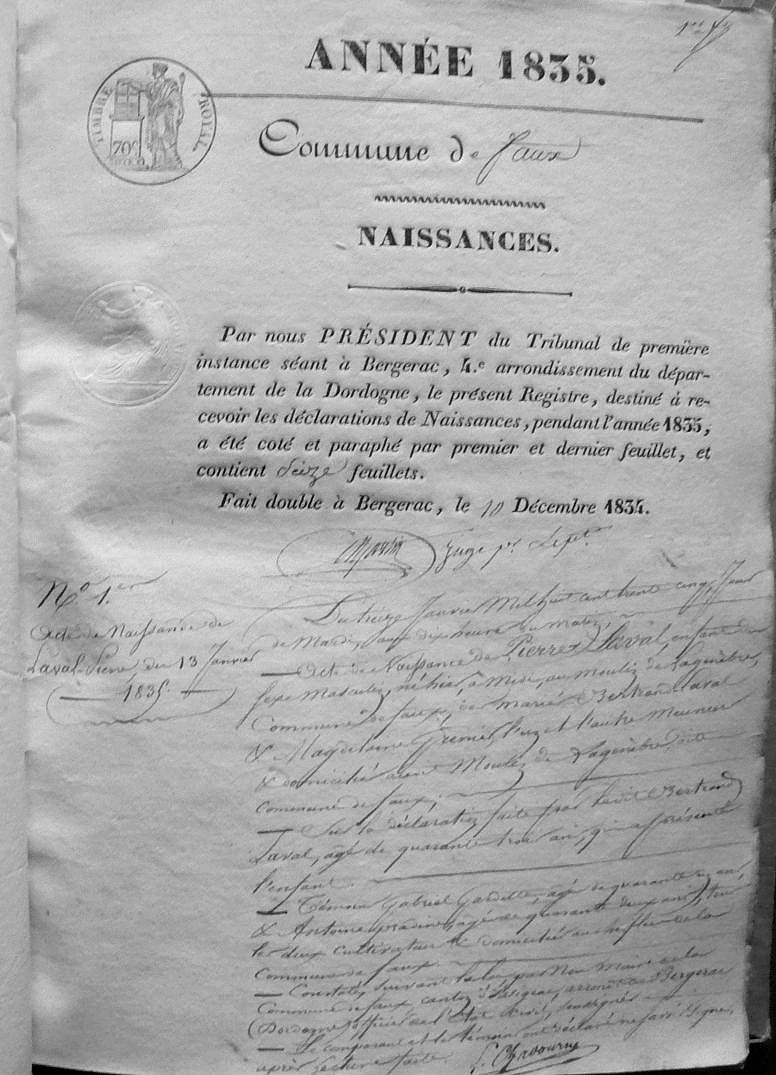 ANNÉE 1835.
TIMBRE ROYAL
70c
Commune de faux
NAISSANCES.
Par nous PRÉSIDENT du Tribunal de première
instance séant à Bergerac, 4.e arrondissement du dépar-
tement de la Dordogne, le présent Registre, destiné à re-
cevoir les déclarations de Naissances, pendant l'année 1835,
a été coté et paraphé par premier et dernier feuillet, et
contient Seize feuillets.
Fait double à Bergerac, le 10 Décembre 1834.
Juge
No 1.er
Acte de Naissance de
Laval Pierre du 13 Janvier
1835.
Du treize Janvier Mil huit cent trente cinq, Jour
de Mardi, aux dix heures du matin;
— Acte de Naissance de Pierre Laval, enfant du
sexe Masculin, né hier, à Midi, au moulin de
Commune de faux, de mariés Bertrand Laval
& Magdelaine Grenier, l'un et l'autre Meuniers
& domiciliés audit Moulin de dite
commune de faux;
— Sur la déclaration faite par ledit Bertrand
Laval, agé de quarante trois ans, qui a présenté
l'enfant.
— Témoins Gabriel Gardette, agé de quarante ans,
& Antoine agé de quarante deux ans, tous
les deux cultivateurs & domiciliés au chef lieu de la
commune de faux.
— Constaté, suivant la loi, par Nous Maire de la
Commune de faux canton d'Issigeac, arrond.t de Bergerac
(Dordogne) officier de l'Etat Civil, soussigné
— Le comparant et les témoins ont déclaré ne savoir signer,
après lecture faite.